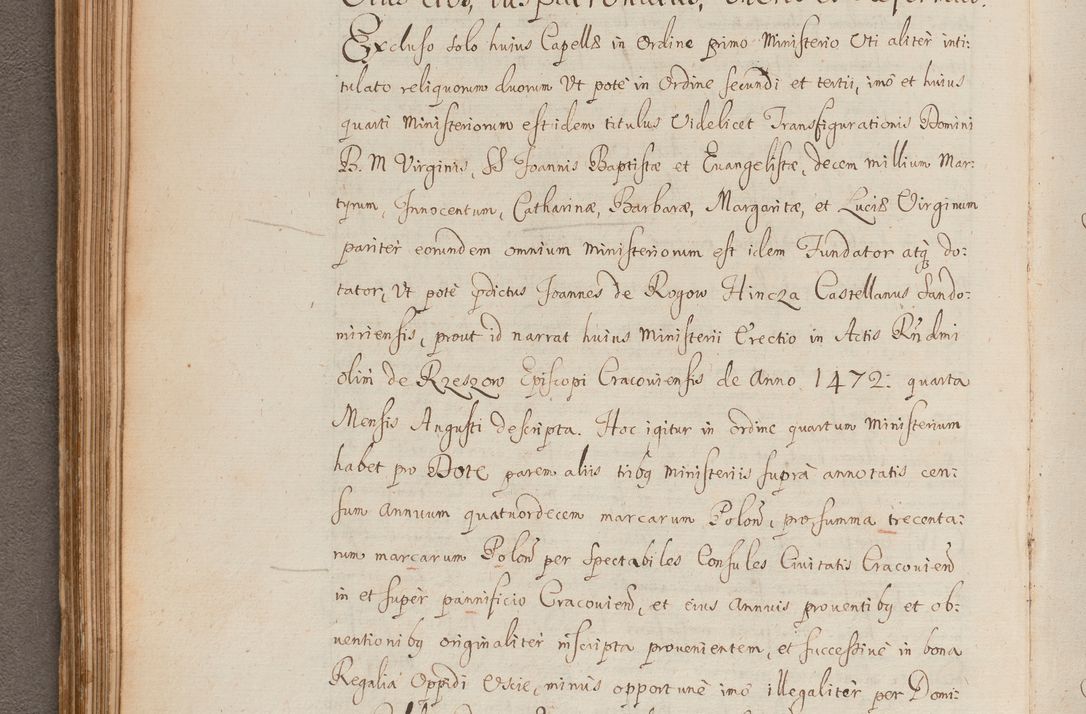 Excluso solo huius Capellæ in Ordine primo Ministerio Uti alitèr inti:
tulato reliquorum duorum Ut potè in Ordine secundi et tertii, imò et huius
quarti Ministeriorum est idem titulus Videlicet Transfigurationis Domini
B. M Virginis, SS Joannis Baptistæ et Euangelistæ, decem millium Mar:
tyrum, Innocentum, Catharinæ, Barbaræ, Margaritæ, et Luciæ Virginum
paritèr eorundem omnium Ministeriorum est idem Fundator atq do:
tator, Ut potè pdictus Joannes de Rogow Hincza Castellanus Sando:
miriensis, prout id narrat huius Ministerii Erectio in Actis Rndmi
olim de Rzeszow Episcopi Cracouiensis de Anno 1472: quarta
Mensis Augusti descripta. Hoc igitur in ordine quartum Ministerium
habet pro Dote parem aliis tribq Ministeriis suprà annotatis cen:
sum annuum quatuordecem marcarum Polon, pro summa trecenta:
rum marcarum Polon per Spectabiles Consules Ciuitatis Cracouien
in et supèr pannificio Cracouien, et eius annuis prouentibq et ob:
uentionibq originalitèr inscripta prouenientem, et successiuè in bona
Regalia Oppidi Oscie, minùs opportunè imò illegalitèr per Domi: